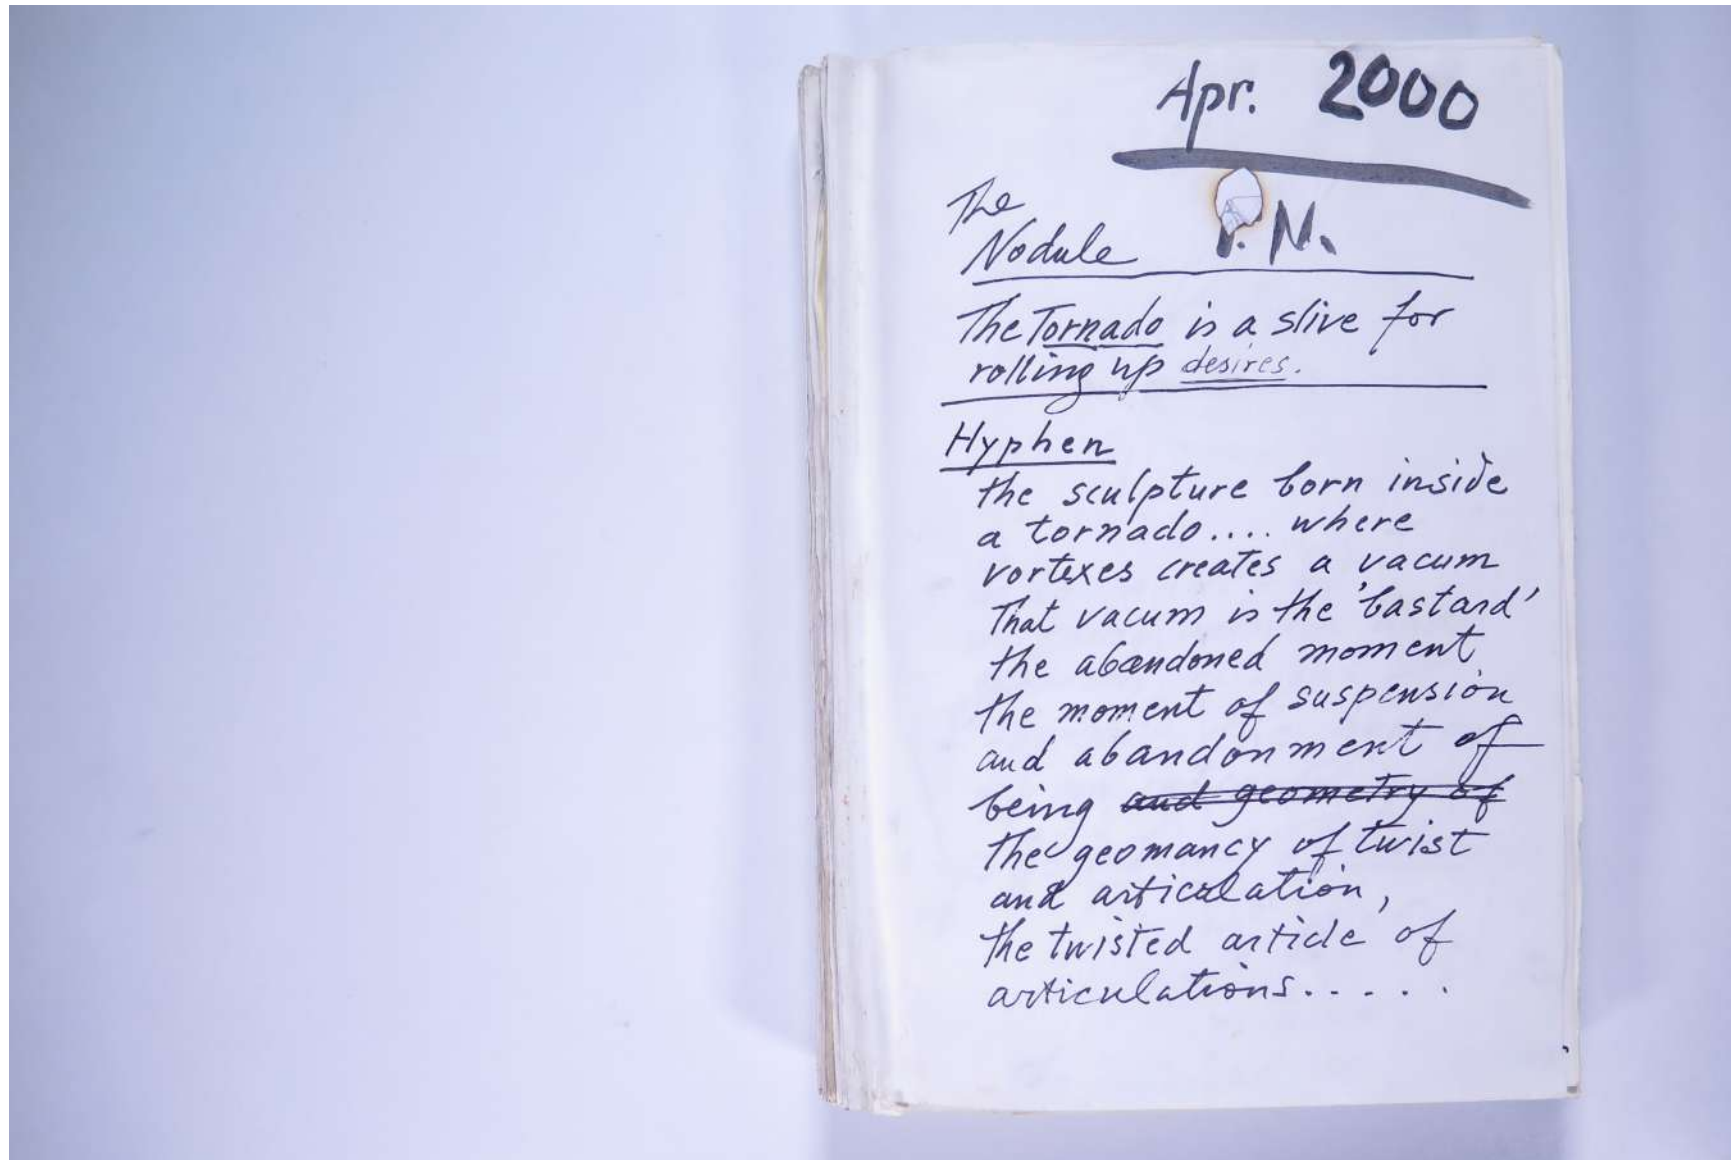 Apr. 2000
The
Nodule . N.
The Tornado is a slive for
rolling up desires.
Hyphen
the sculpture born inside
a tornado.... where
vortexes creates a vacum
That vacum is the 'bastard'
the abandoned moment
the moment of suspension
and abandonment of
being and geometry of
the geomancy of twist
and articulation,
the twisted article of
articulations.....